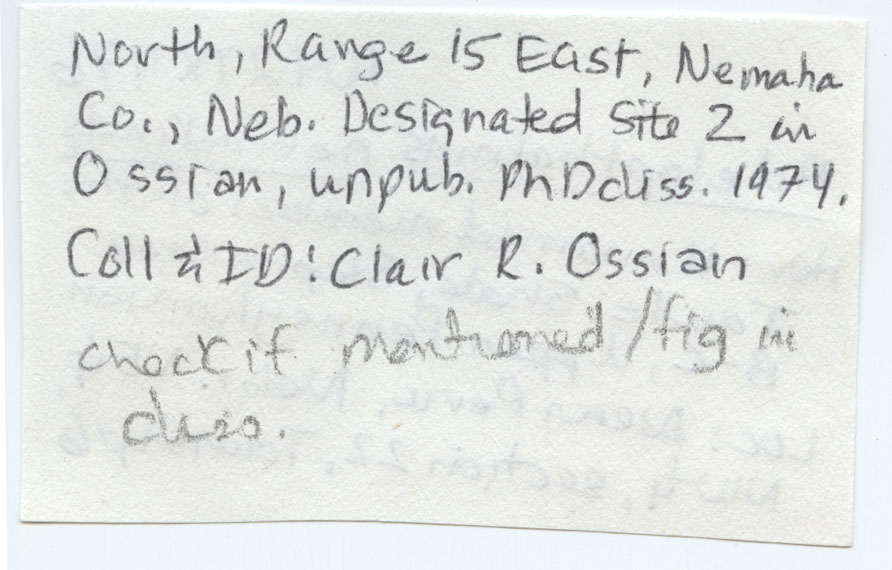 North, Range 15 East, Nemaha
Co., Neb. Designated Site 2 in
Ossian, unpub. PhD diss. 1974.
Coll & ID: Clair R. Ossian
check if mentioned/fig in
diss.